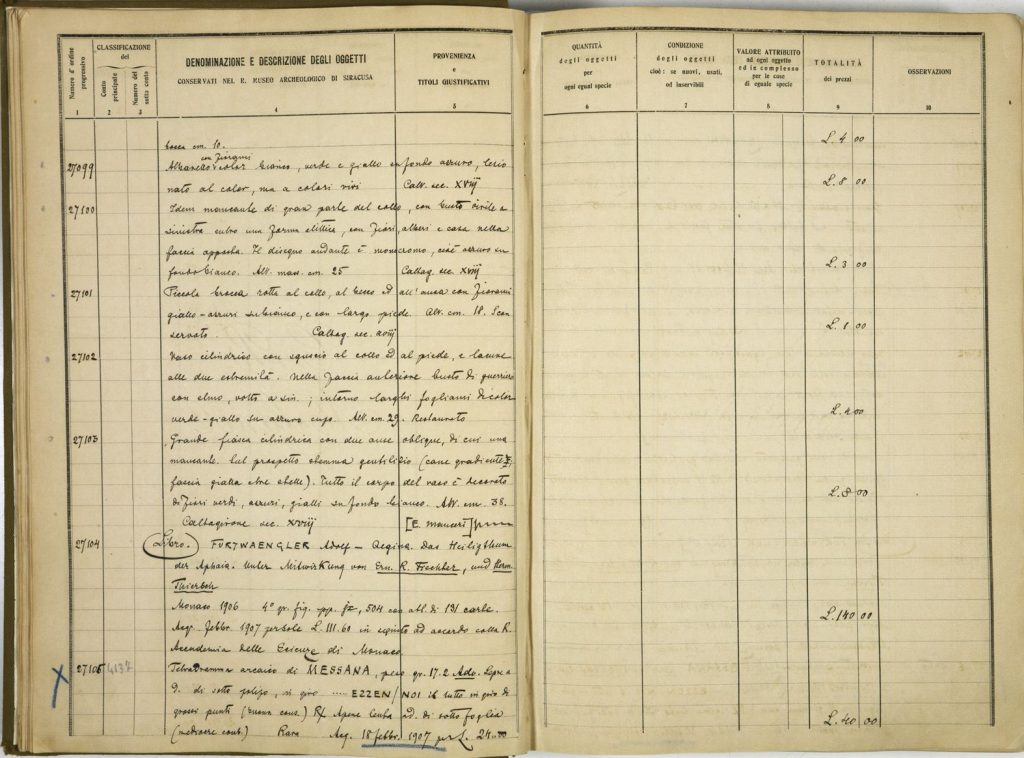 Numero d'ordine progressivo
CLASSIFICAZIONE
del
Conto principale
Numero del sotto conto
DENOMINAZIONE E DESCRIZIONE DEGLI OGGETTI
CONSERVATI NEL R. MUSEO ARCHEOLOGICO DI SIRACUSA
PROVENIENZA
e
TITOLI GIUSTIFICATIVI
QUANTITÀ
degli oggetti
per
ogni egual specie
CONDIZIONE
degli oggetti
cioè: se nuovi, usati,
od inservibili
VALORE ATTRIBUITO
ad ogni oggetto
ed in complesso
per le cose
di eguale specie
TOTALITÀ
dei prezzi
OSSERVAZIONI
1 2 3 4 5 6 7 8 9 10
bocca cm. 10. L. 4 00
con fiorami
27099 Albarello color bianco, verde e giallo su fondo azzurro, lesio
nato al color, ma a colori vivi Calt. sec. XVIII L. 8 00
27100 Idem mancante di gran parte del collo, con busto virile a
sinistra entro una forma elittica, con fiori, alberi e casa nella
faccia opposta. Il disegno andante è monocromo, cioè azzurro su
fondo bianco. Alt. mass. cm. 25 Caltag. sec. XVIII L. 3 00
27101 Piccola brocca rotta al collo, al becco ed all'ansa con fiorami
giallo-azzurri su bianco, e con largo piede. Alt. cm. 18. Scon
servato. Caltag. sec. XVIII L. 1 00
27102 Vaso cilindrico con sguscio al collo ed al piede, e lacune
alle due estremità. Nella faccia anteriore busto di guerriero
con elmo, volto a sin.; intorno larghi fogliami di color
verde-giallo su azzurro cupo. Alt. cm. 29. Restaurato L. 4 00
27103 Grande fiasca cilindrica con due anse oblique, di cui una
mancante. Sul prospetto stemma gentilizio (cane gradiente
faccia gialla tre stelle). Tutto il corpo del vaso è decorato
di fiori verdi, azzurri, gialli su fondo bianco. Alt. cm. 38. L. 8 00
Caltagirone sec. XVIII [E. Mauceri]
27104 Libro. FURTWAENGLER Adolf — Aegina. Das Heiligthum
der Aphaia. Unter Mitwirkung von Ern. R. Fiechter, und Herm.
Thiersch
Monaco 1906 4° gr. fig. pp. 504 con atl. di 131 carte. L. 140 00
Acq. Febbr. 1907 per sole L. 111.60 in seguito ad accordo colla R.
Accademia delle Scienze di Monaco.
X 27105 4137 Tetradramma arcaico di MESSANA, peso gr. 17.2 Ado. Lepre a
d. di sotto polipo, in giro .... EZZEN/NOI il tutto in giro di
grossi punti (buona cons.) R/ Apene lenta ad d. di sotto foglia
(mediocre cons.) Rara Acq. 18 febbr. 1907 per L. 24.00 L. 40 00